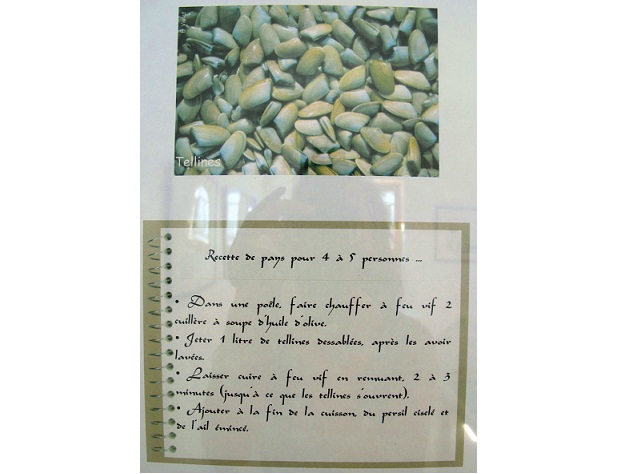 Tellines
Recette de pays pour 4 à 5 personnes ...
• Dans une poêle, faire chauffer à feu vif 2
cuillère à soupe d'huile d'olive.
• Jeter 1 litre de tellines dessablées, après les avoir
lavées.
• Laisser cuire à feu vif en remuant, 2 à 3
minutes (jusqu'à ce que les tellines s'ouvrent).
• Ajouter à la fin de la cuisson, du persil ciselé et
de l'ail émincé.